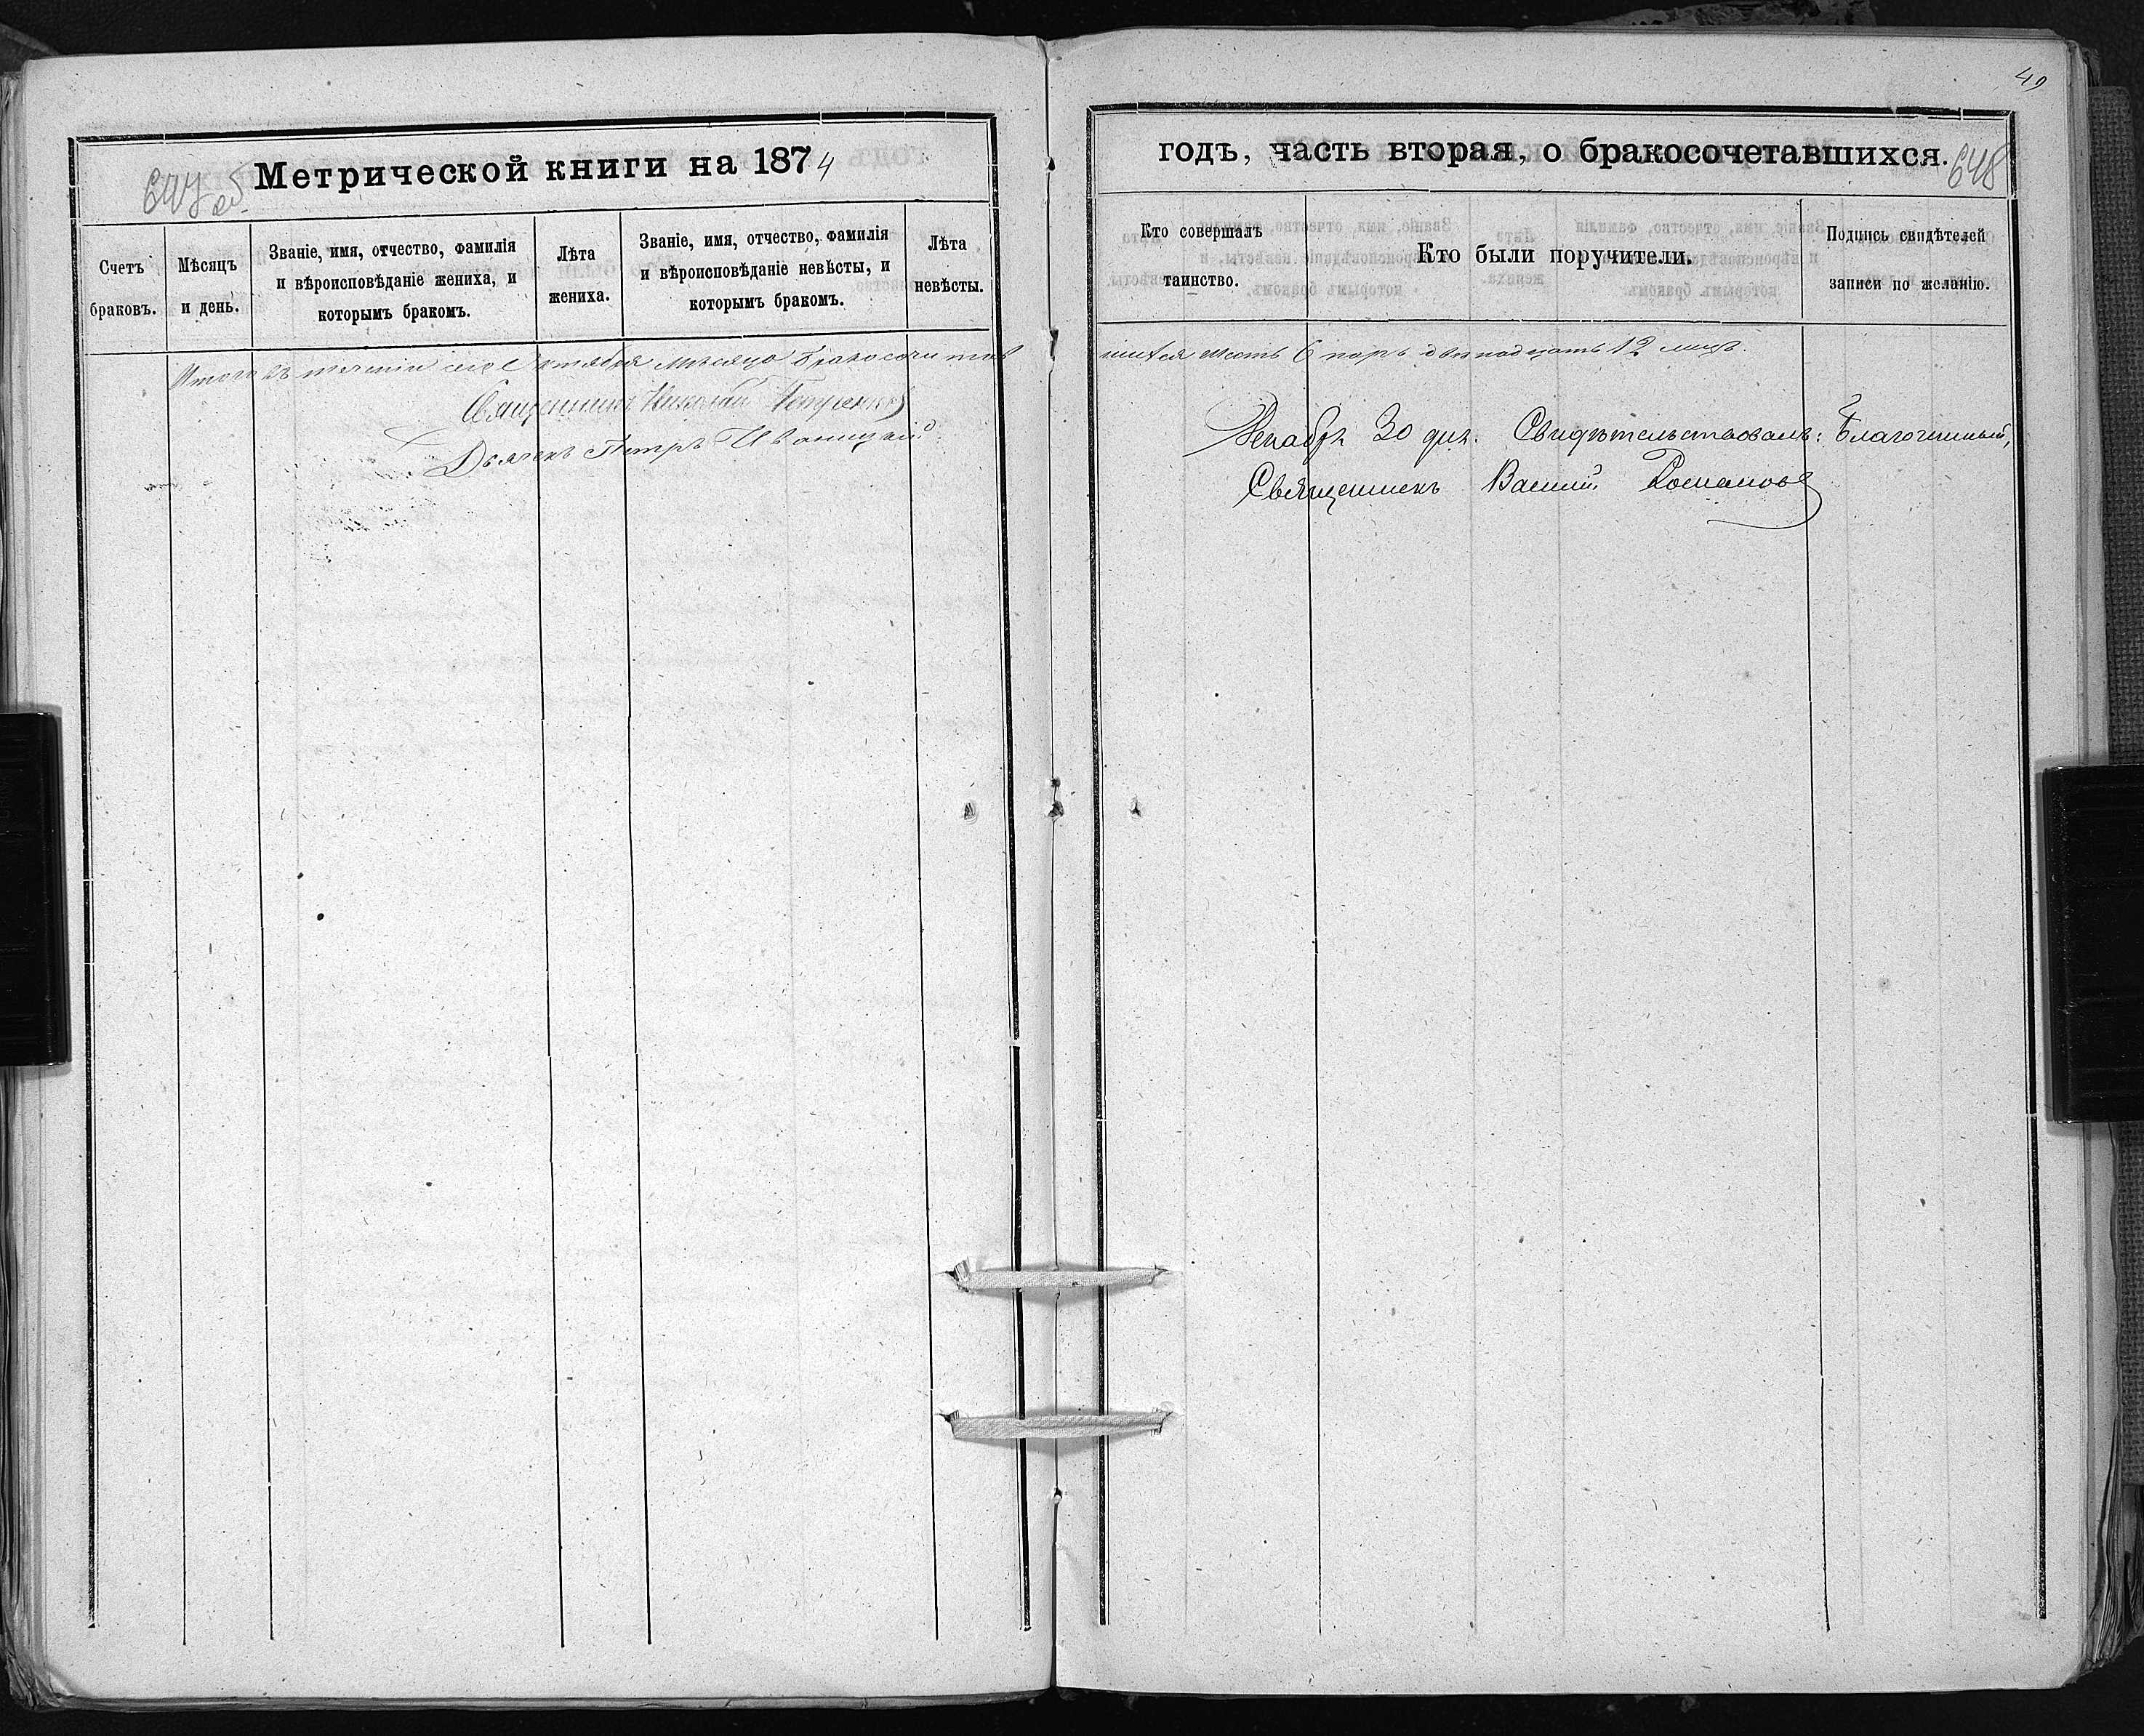 Метрической книги на 1874
Счетъ браковъ.
Мѣсяцъ и день.
Званіе, имя, отчество, фамилія и вѣроисповѣданіе жениха, и которымъ бракомъ.
Лѣта жениха.
Званіе, имя, отчество, фамилія и вѣроисповѣданіе невѣсты, и которымъ бракомъ.
Лѣта невѣсты.
Итого въ теченіи сего Октября мѣсяца бракосочетав
Священникъ Николай
Дьячекъ Петръ
49
годъ, часть вторая, о бракосочетавшихся.
648
Кто совершалъ таинство.
Кто были поручители.
Подпись свидѣтелей записи по желанію.
шихся шесть 6 паръ двенадцать 12 лицъ.
Декабря 30 дня. Свидѣтельствовалъ: Благочинный,
Священникъ Василій Романовъ